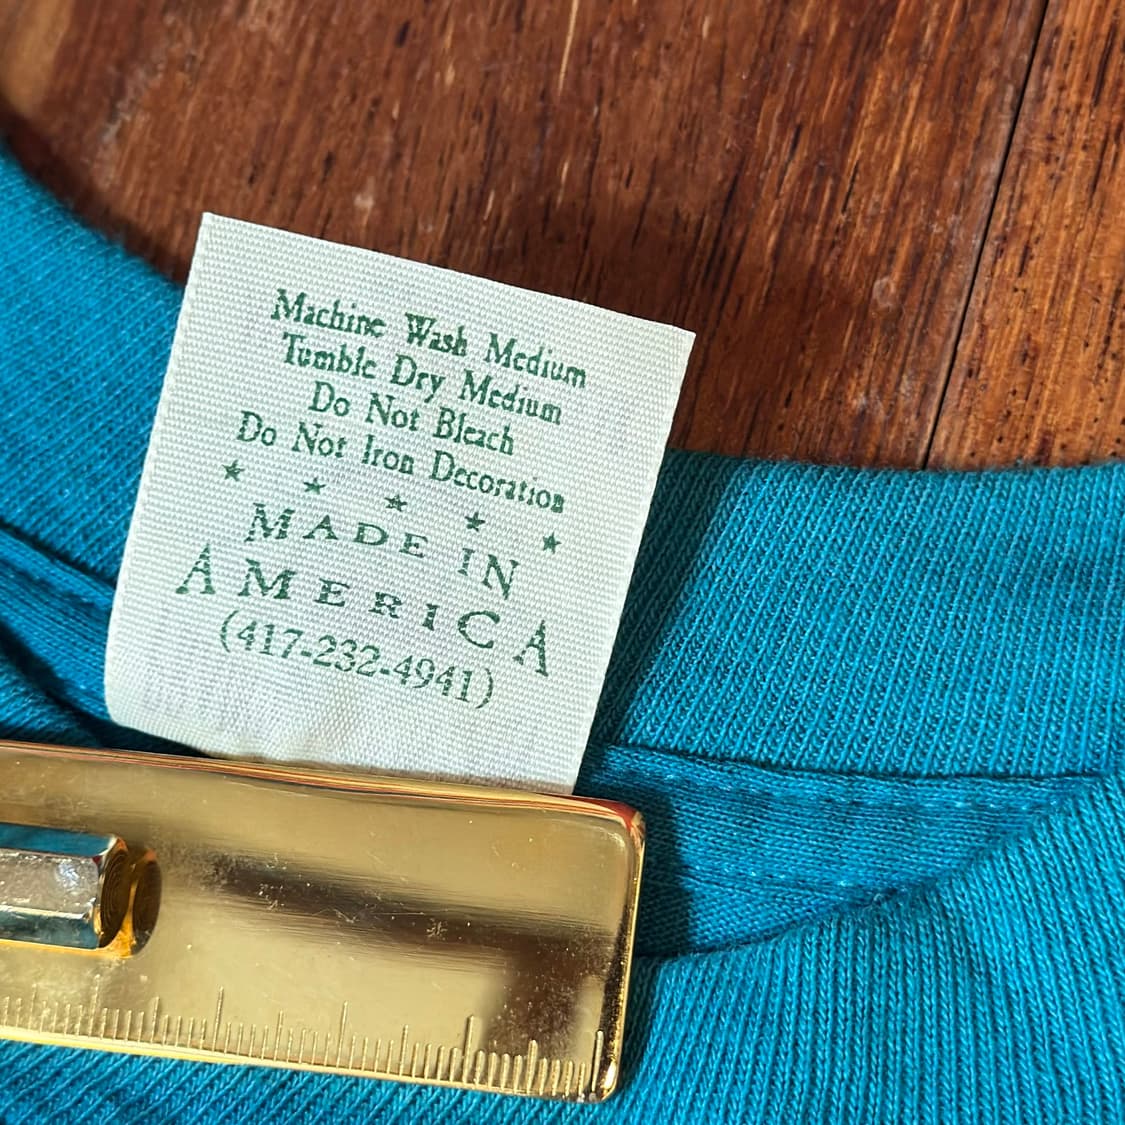 Machine Wash Medium
Tumble Dry Medium
Do Not Bleach
Do Not Iron Decoration
MADE IN
AMERICA
(417-232-4941)